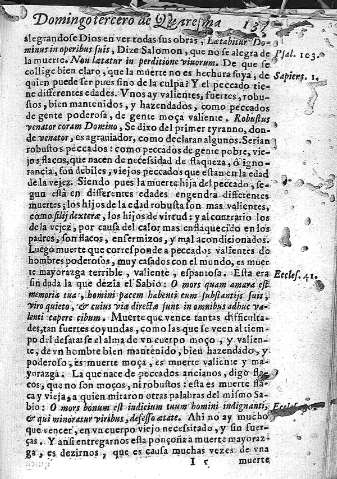 Domingo tercero de Quaresma 137
alegrandose Dios en ver todas sus obras, Lætabitur Do-
minus in operibus suis, Dize Salomon, que no se alegra de
la muerte. Non lætatur in perditione viuorum. De que se
collige bien claro, que la muerte no es hechura suya, de
quien puede ser pues sino de la culpa? Y el peccado tie-
ne differentes edades. Vnos ay valientes, fuertes, robu-
stos, bien mantenidos, y hazendados, como peccados
de gente poderosa, de gente moça valiente. Robustus
venator coram Domino, Se dixo del primer tyranno, don-
de venator, es agrauiador, como declaran algunos. Serian
robustos peccados: como peccados de gente pobre, vie-
jos flacos, que nacen de necesidad de flaqueza, ó igno-
rancia, son debiles, viejos peccados que estan en la edad
de la vejez. Siendo pues la muerte hija del peccado, se-
gun està en differentes edades engendra differentes
muertes; los hijos de la edad robusta son mas valientes,
como filij dexteræ, los hijos de virtud: y al contrario los
de la vejez, por causa del calor mas enflaquecido en los
padres, son flacos, enfermizos, y mal acondicionados.
Luego muerte que corresponde a peccados valientes de
hombres poderosos, muy casados con el mundo, es muer
te mayorazga terrible, valiente, espantosa. Esta era
sin duda la que dezia el Sabio: O mors quam amara est
memoria tua, homini pacem habenti cum substantijs suis,
viro quieto, & cuius via directæ sunt in omnibus adhuc va-
lenti capere cibum. Muerte que vence tantas difficulta-
des, tan fuertes coyundas, como las que se veen al tiem-
po del desatarse el alma de vn cuerpo moço, y valien-
te, de vn hombre bien mantenido, bien hazendado, y
poderoso, es muerte moça, es muerte valiente y ma-
yorazga. La que nace de peccados ancianos, digo fla-
cos, que no son moços, ni robustos: esta es muerte fla-
ca y vieja, a quien miraron otras palabras del mismo Sa-
bio: O mors bonum est iudicium tuum homini indigenti,
& qui minoratur viribus, defesso ætate. Ahi no ay mucho
que vencer, en vn cuerpo viejo necesitado, y sin fuer-
ças. Y ansi entregarnos esta ponçoña a muerte mayoraz-
ga, es dezirnos, que es causa muchas vezes de vna
I 5 muerte
Psal. 103.
Sapient. 1.
Eccles. 41.